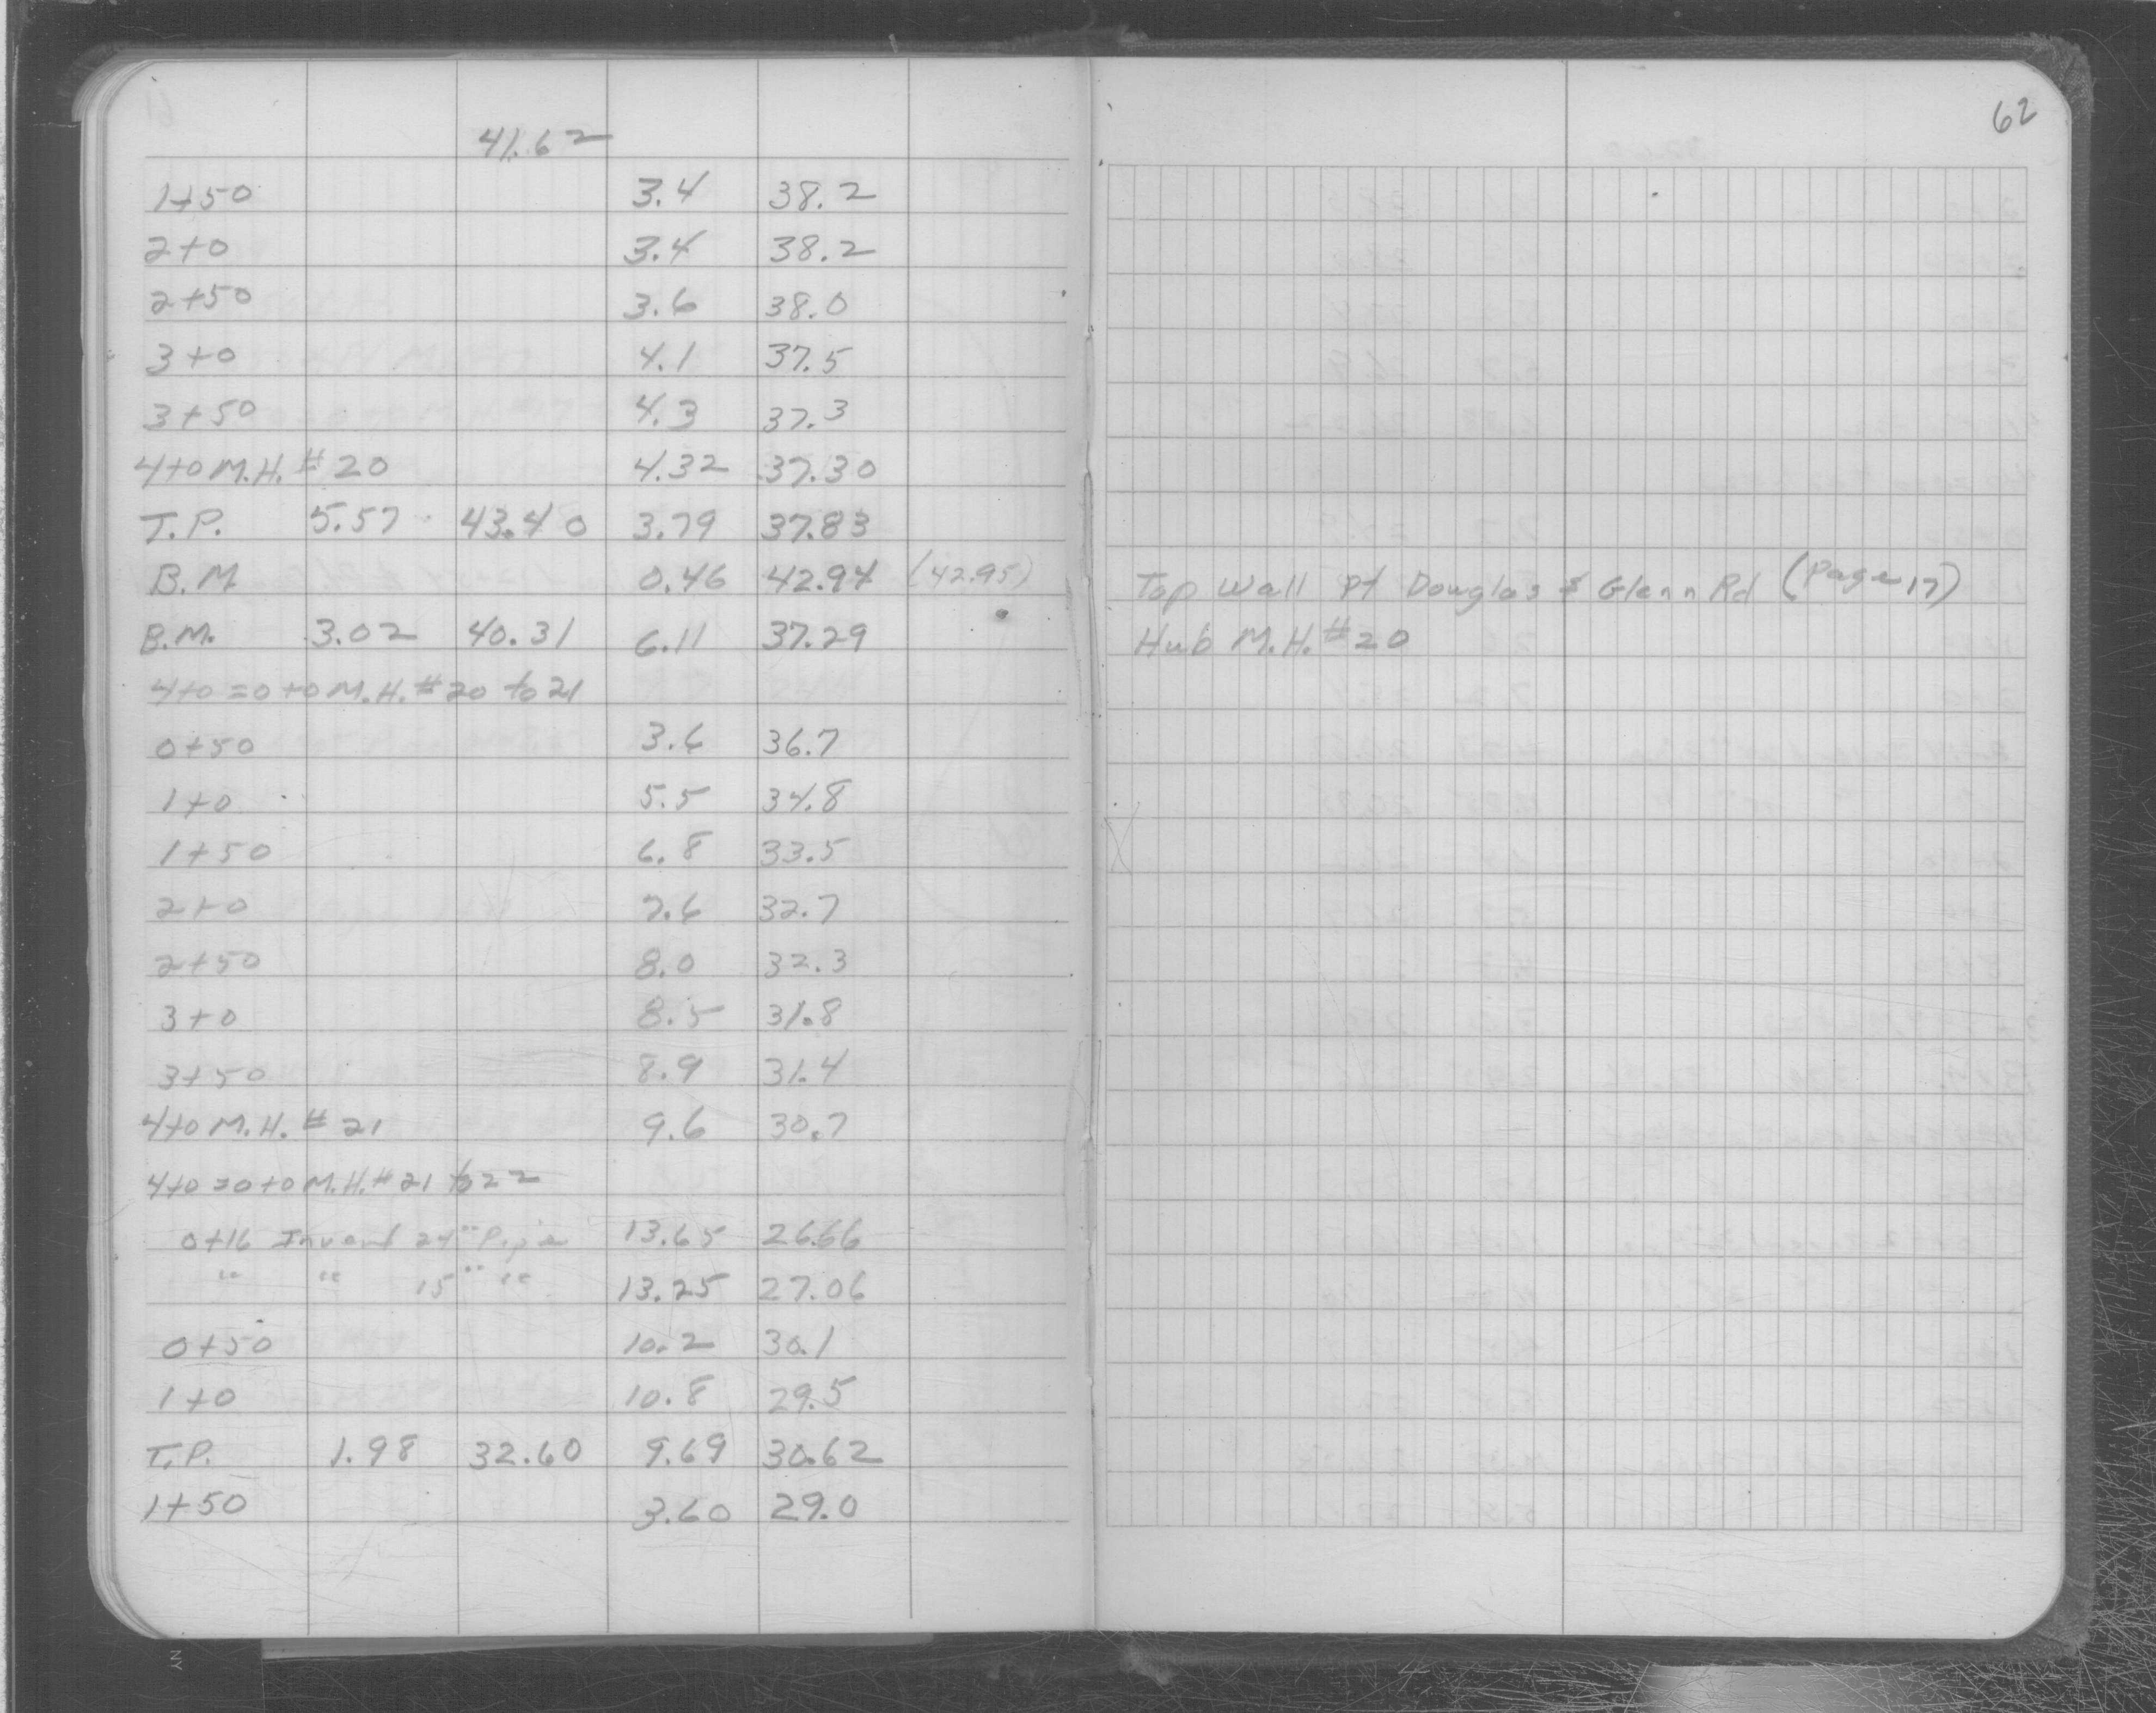 62
41.62
1+50 3.4 38.2
2+0 3.4 38.2
2+50 3.6 38.0
3+0 4.1 37.5
3+50 4.3 37.3
4+0 M.H. #20 4.32 37.30
T.P. 5.57 43.40 3.79 37.83
B.M 0.46 42.94 (42.95) Top Wall Pt Douglas & Glenn Rd (Page 17)
B.M. 3.02 40.31 6.11 37.29 Hub M.H. #20
4+0 = 0+0 M.H. #20 to 21
0+50 3.6 36.7
1+0 5.5 34.8
1+50 6.8 33.5
2+0 7.6 32.7
2+50 8.0 32.3
3+0 8.5 31.8
3+50 8.9 31.4
4+0 M.H. #21 9.6 30.7
4+0 = 0+0 M.H. #21 to 22
0+16 Invert 24" Pipe 13.65 26.66
" " 15" " 13.25 27.06
0+50 10.2 30.1
1+0 10.8 29.5
T.P. 1.98 32.60 9.69 30.62
1+50 3.60 29.0
NY